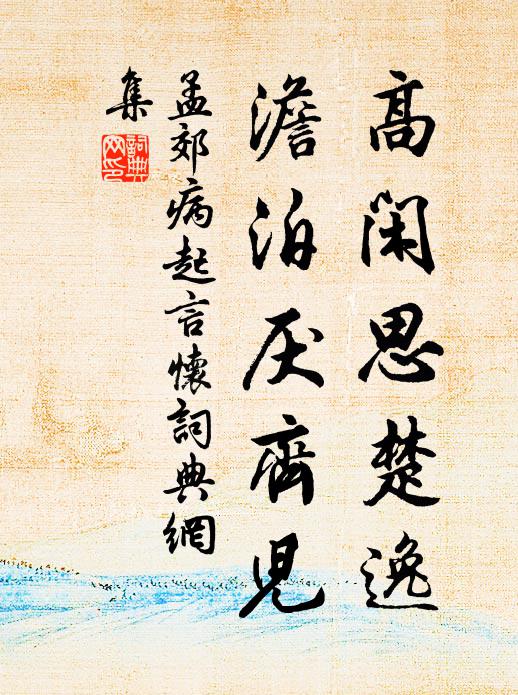 高閑思楚逸
澹泊厌齊兒
孟郊病起言懷詞典網
集
詞典
网印